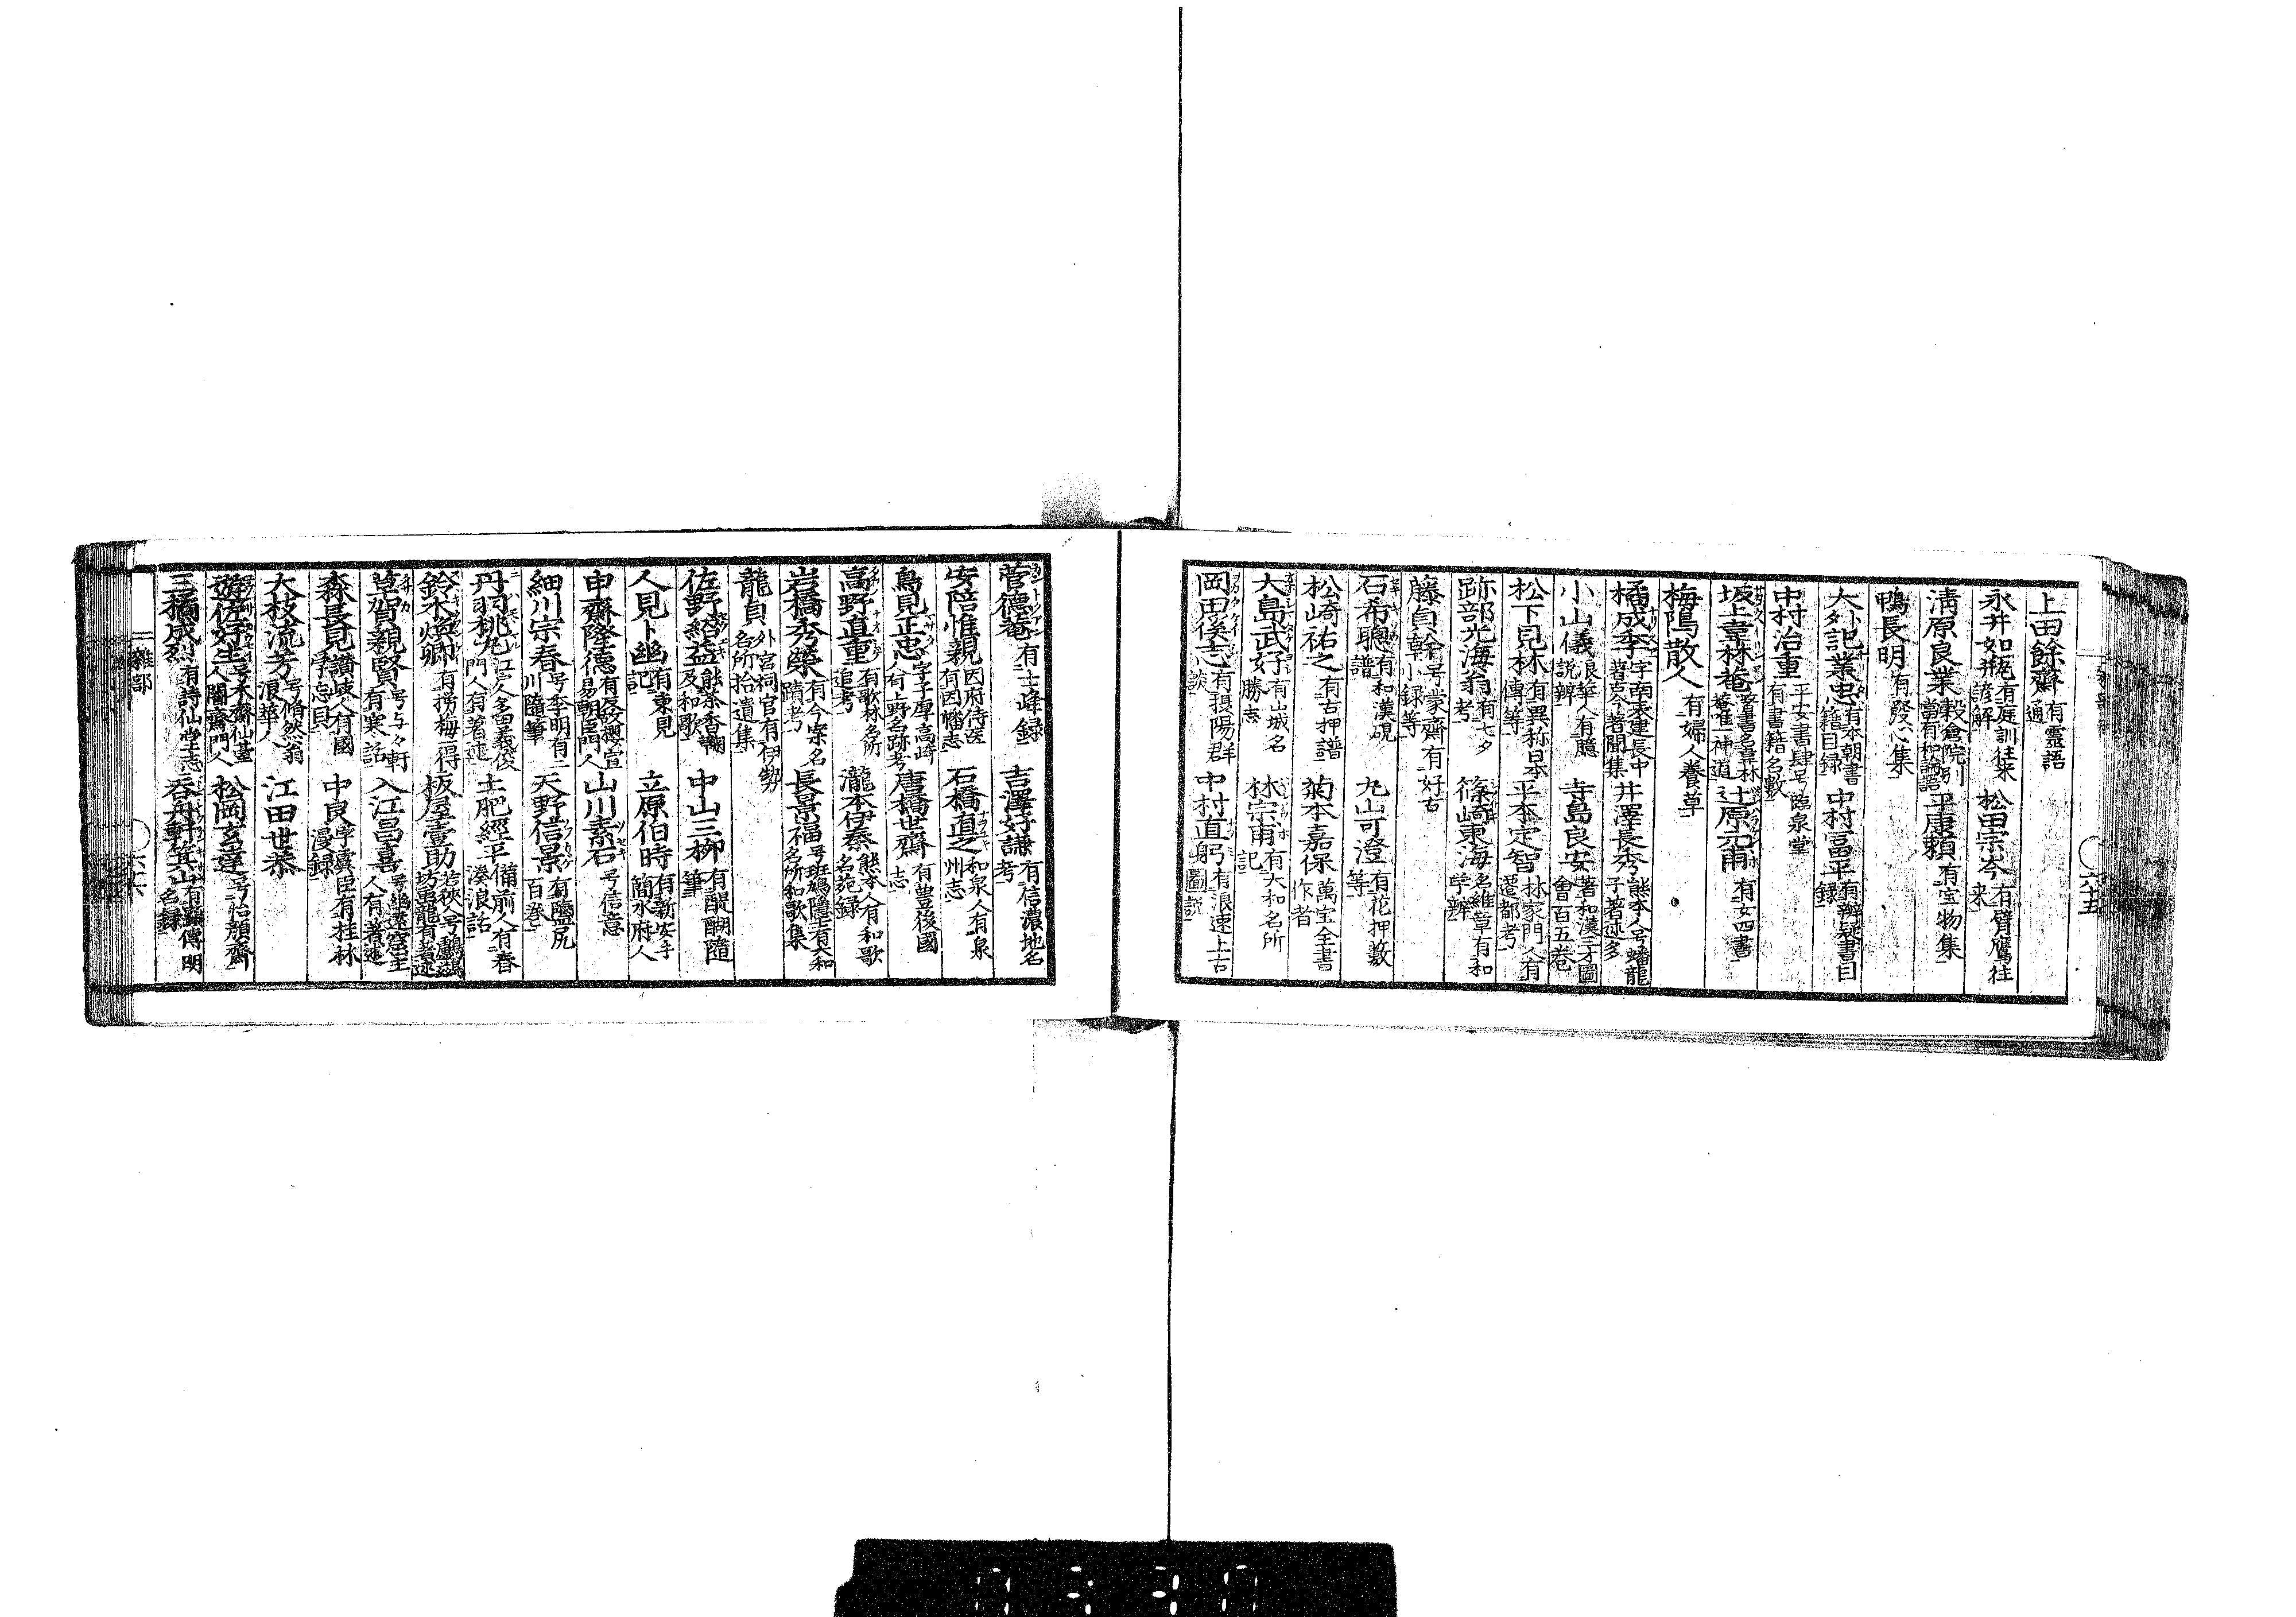 上田餘齋 有靈語通
永井如瓶 有庭訓徃来諺解 松田宗岑 有臂鷹往来
淸原良業 穀倉院別當有和論語 平康頼 有宝物集
鴨長明 有發心集
大外記業忠 有本朝書籍目録 中村富平 有辨疑書目録
中村治重 平安書肆号臨泉堂有書籍名數
坂上韋林菴 著書名韋林菴唯一神道 辻原元甫 有女四書
梅隖散人 有婦人養草
橘成季 字南袁建長中著古今著聞集 井澤長秀 熊本人号蟠龍子著述多
小山儀 浪華人有臆説辨 寺島良安 著和漢三才圖會百五巻
松下見林 有異称日本傳等 平本定智 林家門人有遷都考
跡部光海翁 有七夕考 篠崎東海 名維章有和学辨
藤貞幹 号蒙齋有好古小録等
石希聰 有和漢硯譜 丸山可澄 有花押數等
松崎祐之 有古押譜 菊本嘉保 萬宝全書作者
大島武好 有山城名勝志 林宗甫 有大和名所記
岡田徯志 有摂陽群談 中村直躬 有浪速上古圖説
六十五
菅德菴 有士峰録 吉澤好謙 有信濃地名考
安陪惟親 因府侍医有因幡志 石橋直之 和泉人有泉州志
鳥見正忠 字子厚高崎人有上野名跡考 唐橋世齋 有豊後國志
高野直重 有歌林名所追考 瀧本伊秦 熊本人有和歌名苑録
岩橋秀榮 有今案名蹟考 長景福 号斑鳩隱士有大和名所和歌集
龍貞 外宮祠官有伊勢名所拾遺集
佐野紹益 能茶香鞠及和歌 中山三柳 有醍醐隨筆
人見卜幽 有東見記 立原伯時 有新安手簡水府人
申齋隆德 有桜宣易朝臣門人 山川素石 号信意
細川宗春 号李明有二川隨筆 天野信景 有鹽尻百巻
丹羽桃九 江人多田義俊門人有著述 土肥經平 備前人有春湊浪話
鈴木煥卿 有撈海一得 板屋壹助 若狹人号鸕鷀坊萬龍有著述
草賀親賢 号与々軒有寒話 入江昌喜 号幽遠窟主人有著述
森長見 讃岐人有國学忘貝 中良 字虞臣有桂林漫録
大枝流芳 号脩然翁浪華人 江田世恭
遊佐好生 号木齋仙臺人闇齋門人 松岡玄達 号怡顔齋
三橋成烈 有詩仙堂志 呑舟軒箕山 有顕傳明名録
雜部
六十六